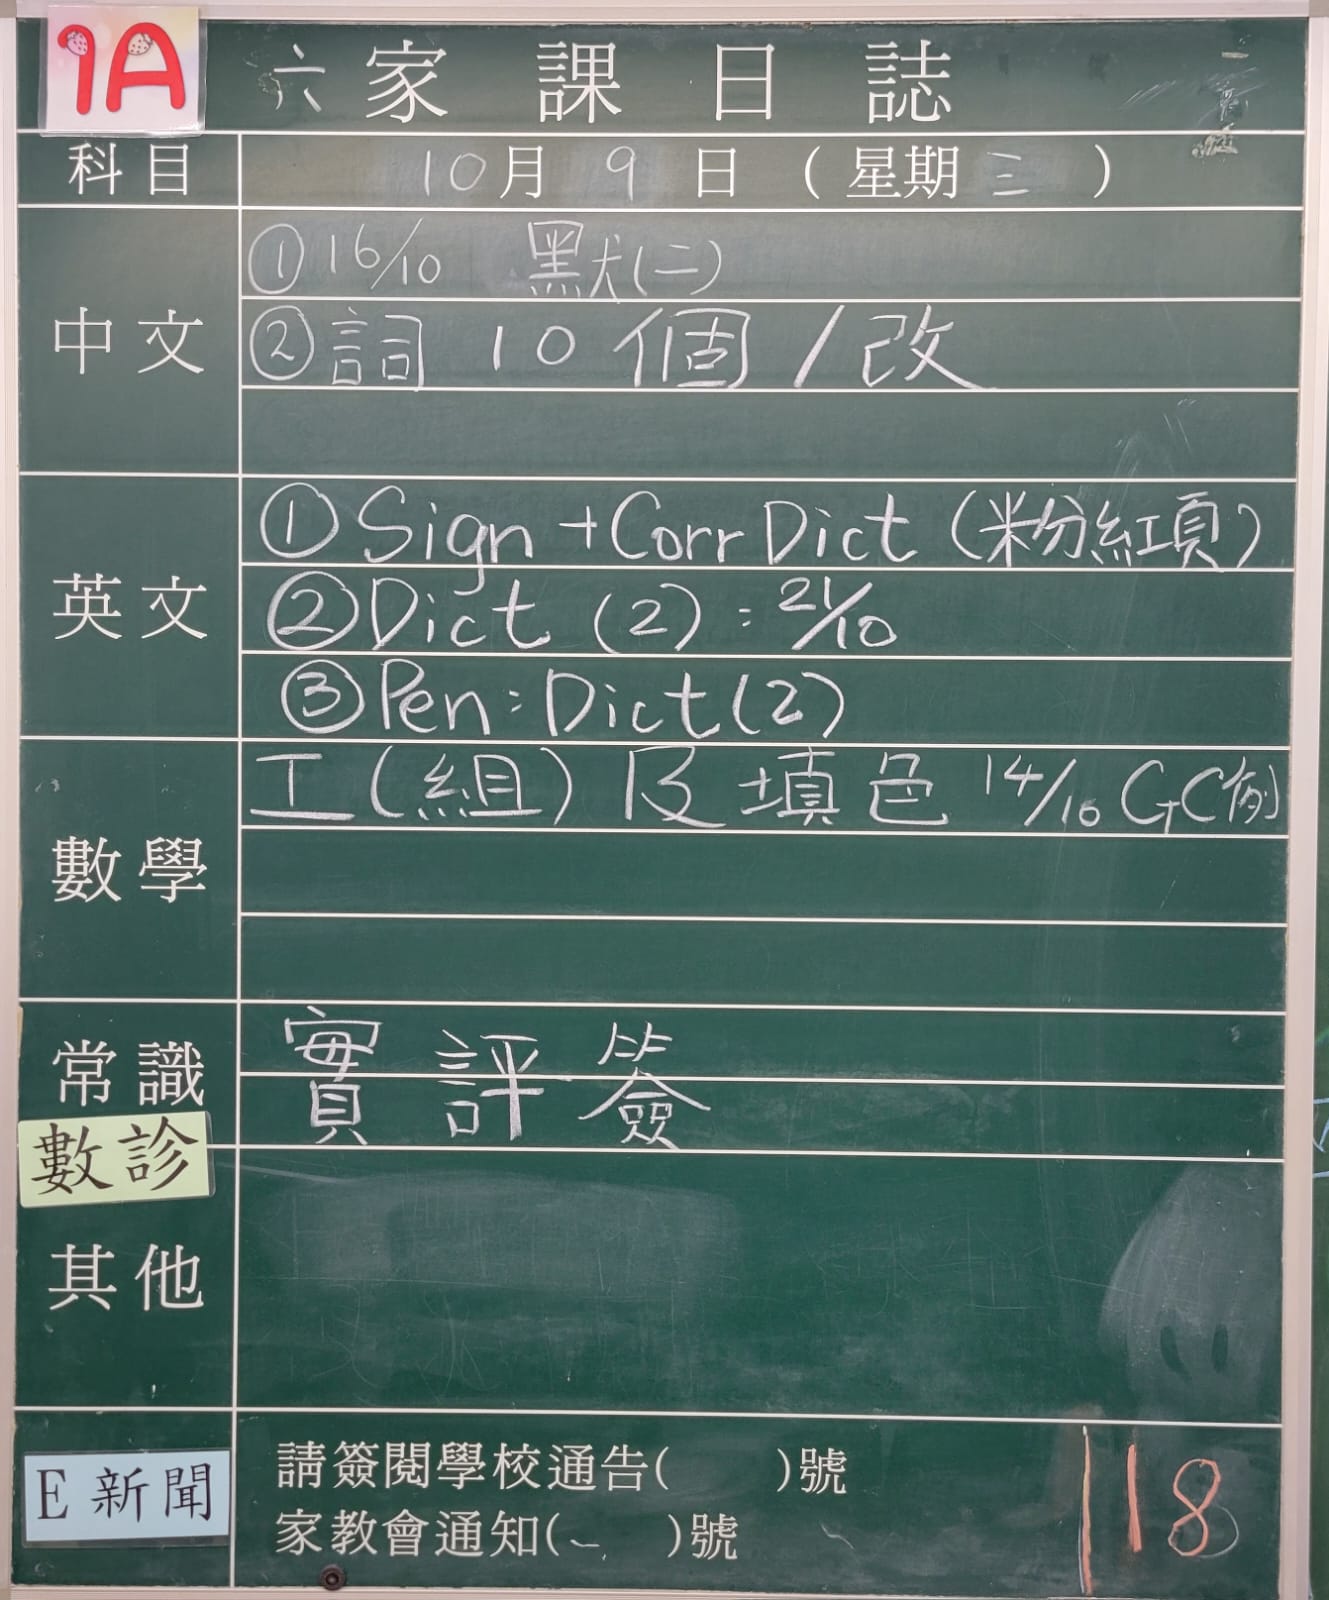 1A
六 家 課 日 誌
科目 10月 9 日 (星期 三 )
中文
① 16/10 默(二)
② 詞 10 個 / 改
英文
① Sign + Corr Dict (粉紅頁)
② Dict (2) : 21/10
③ Pen : Dict (2)
數學
工 (組) 及 填 色 14/10
常識
實 評 簽
數診
其他
E 新聞
請簽閱學校通告( )號
家教會通知( )號
118